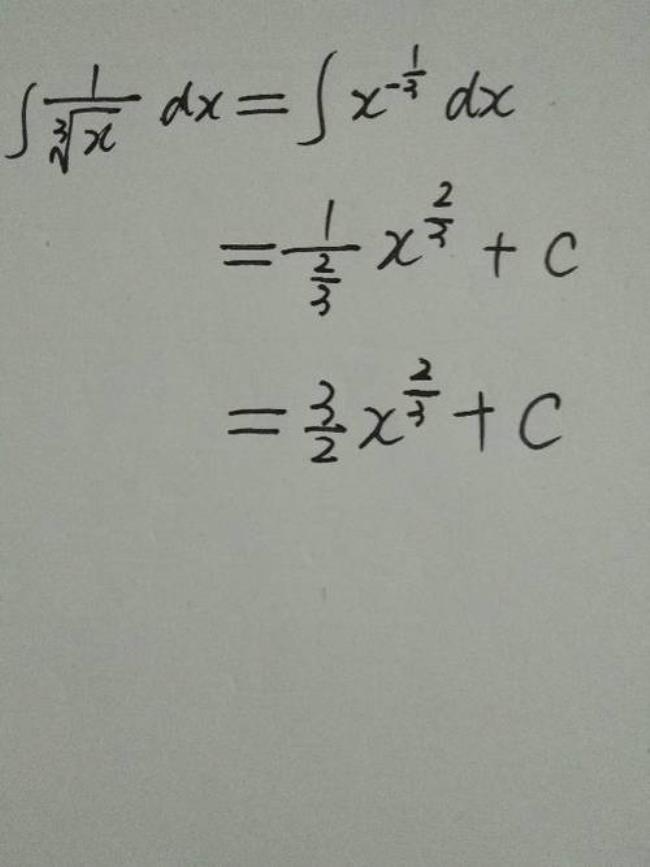 ∫ 1/∛x dx = ∫ x^(-1/3) dx
= 1/(2/3) x^(2/3) + C
= 3/2 x^(2/3) + C